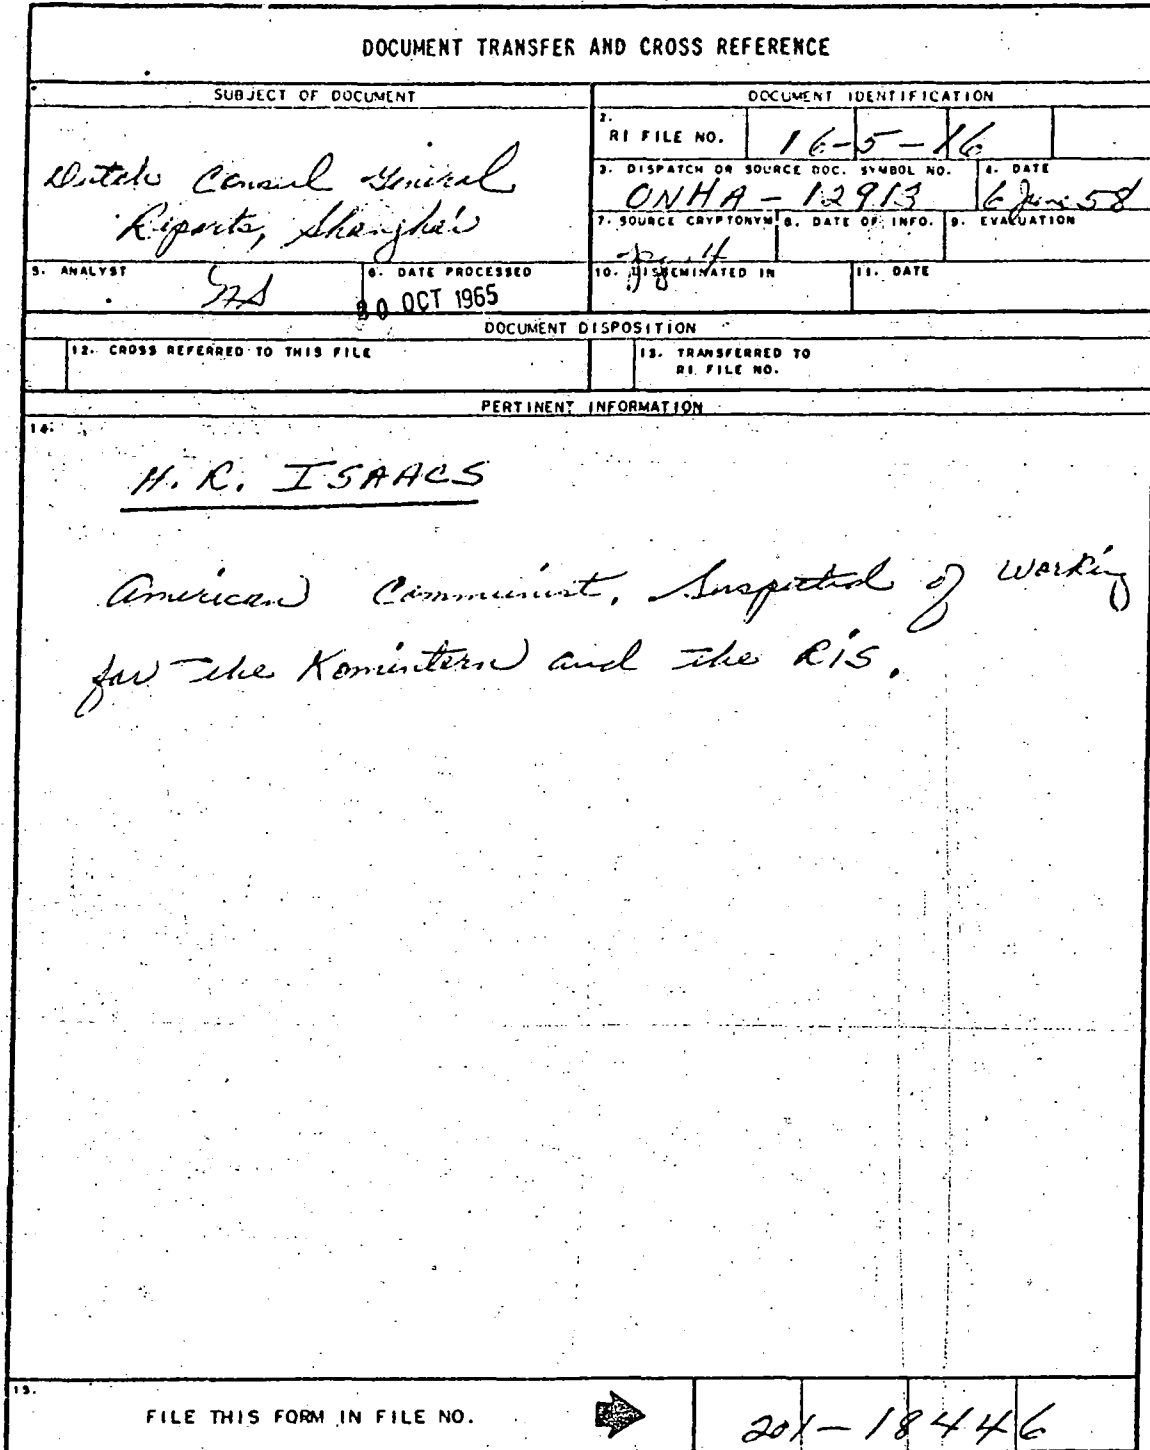 DOCUMENT TRANSFER AND CROSS REFERENCE
SUBJECT OF DOCUMENT
Dutch Consul General
Reports, Shanghai
5. ANALYST
6. DATE PROCESSED
20 OCT 1965
DOCUMENT IDENTIFICATION
2. RI FILE NO.
16-5-16
3. DISPATCH OR SOURCE DOC. SYMBOL NO.
ONHA-12913
4. DATE
6 June 58
7. SOURCE CRYPTONYM
8. DATE OF INFO.
9. EVALUATION
10. DISSEMINATED IN
11. DATE
DOCUMENT DISPOSITION
12. CROSS REFERRED TO THIS FILE
13. TRANSFERRED TO
RI FILE NO.
PERTINENT INFORMATION
14.
H. R. ISAACS
American Communist. Suspected of working
for the Komintern and the RIS.
15.
FILE THIS FORM IN FILE NO.
201-18446